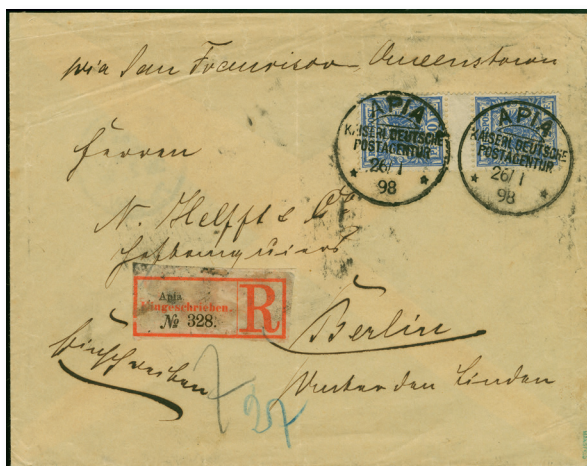 via San Francisco Queenstown
APIA
KAISERL. DEUTSCHE
POSTAGENTUR
26/1
98
APIA
KAISERL. DEUTSCHE
POSTAGENTUR
26/1
98
Herren
N. Helfft & Co
Hofbanquiers
Apia
Eingeschrieben.
№ 328.
R
Berlin
Einschreiben
Unter den Linden